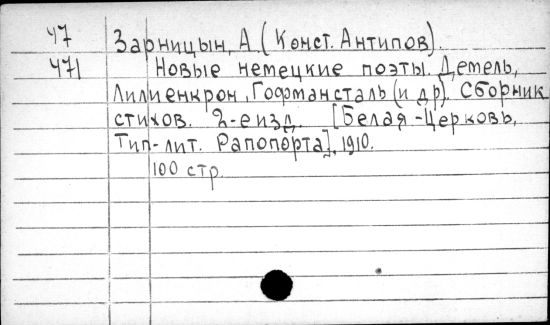 47 Зарницын, А. (Конст. Антипов).
471 Новые немецкие поэты. Демель,
Лилиенкрон, Гофмансталь (и др). Сборник
стихов. 2-е изд. [Белая-Церковь,
Тип-лит. Рапопорта], 1910.
100 стр.